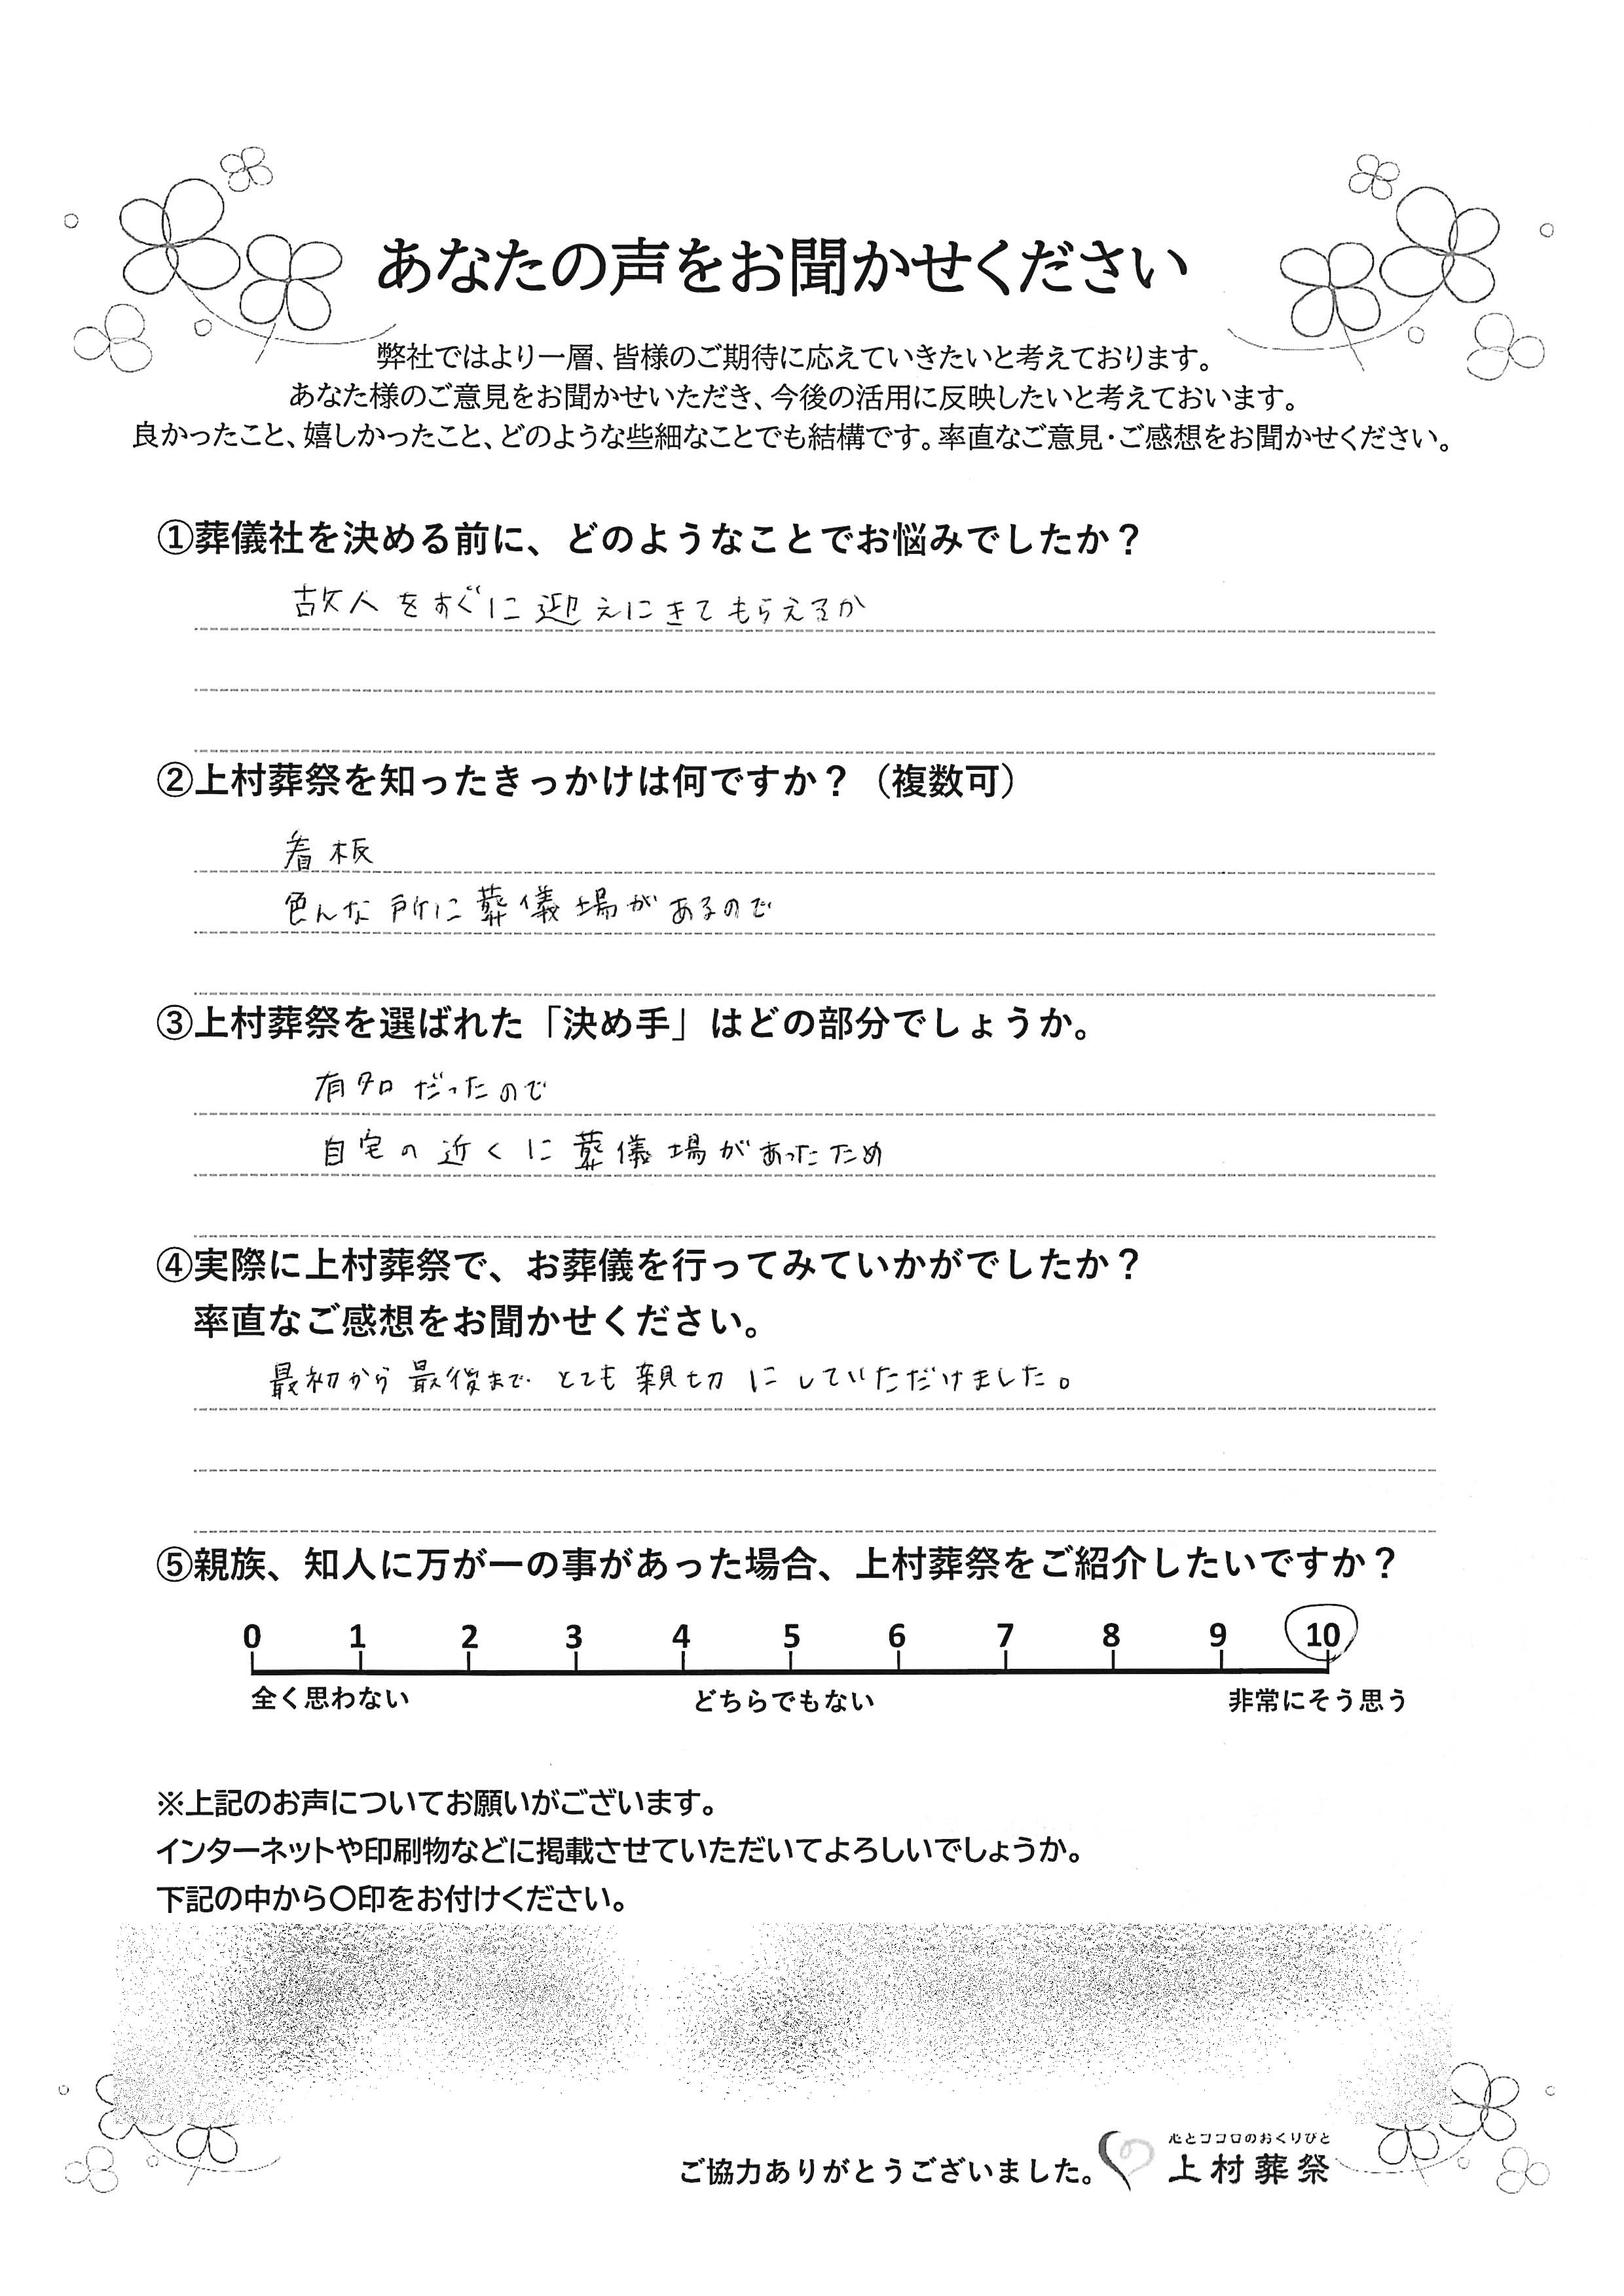 あなたの声をお聞かせください
弊社ではより一層、皆様のご期待に応えていきたいと考えております。
あなた様のご意見をお聞かせいただき、今後の活用に反映したいと考えておいます。
良かったこと、嬉しかったこと、どのような些細なことでも結構です。率直なご意見・ご感想をお聞かせください。
①葬儀社を決める前に、どのようなことでお悩みでしたか？
故人をすぐに迎えにきてもらえるか
②上村葬祭を知ったきっかけは何ですか？（複数可）
看板
色んな所に葬儀場があるので
③上村葬祭を選ばれた「決め手」はどの部分でしょうか。
有名だったので
自宅の近くに葬儀場があったため
④実際に上村葬祭で、お葬儀を行ってみていかがでしたか？
率直なご感想をお聞かせください。
最初から最後まで とても親切にしていただけました。
⑤親族、知人に万が一の事があった場合、上村葬祭をご紹介したいですか？
0 1 2 3 4 5 6 7 8 9 10
全く思わない どちらでもない 非常にそう思う
※上記のお声についてお願いがございます。
インターネットや印刷物などに掲載させていただいてよろしいでしょうか。
下記の中から〇印をお付けください。
心とココロのおくりびと
ご協力ありがとうございました。 上村葬祭